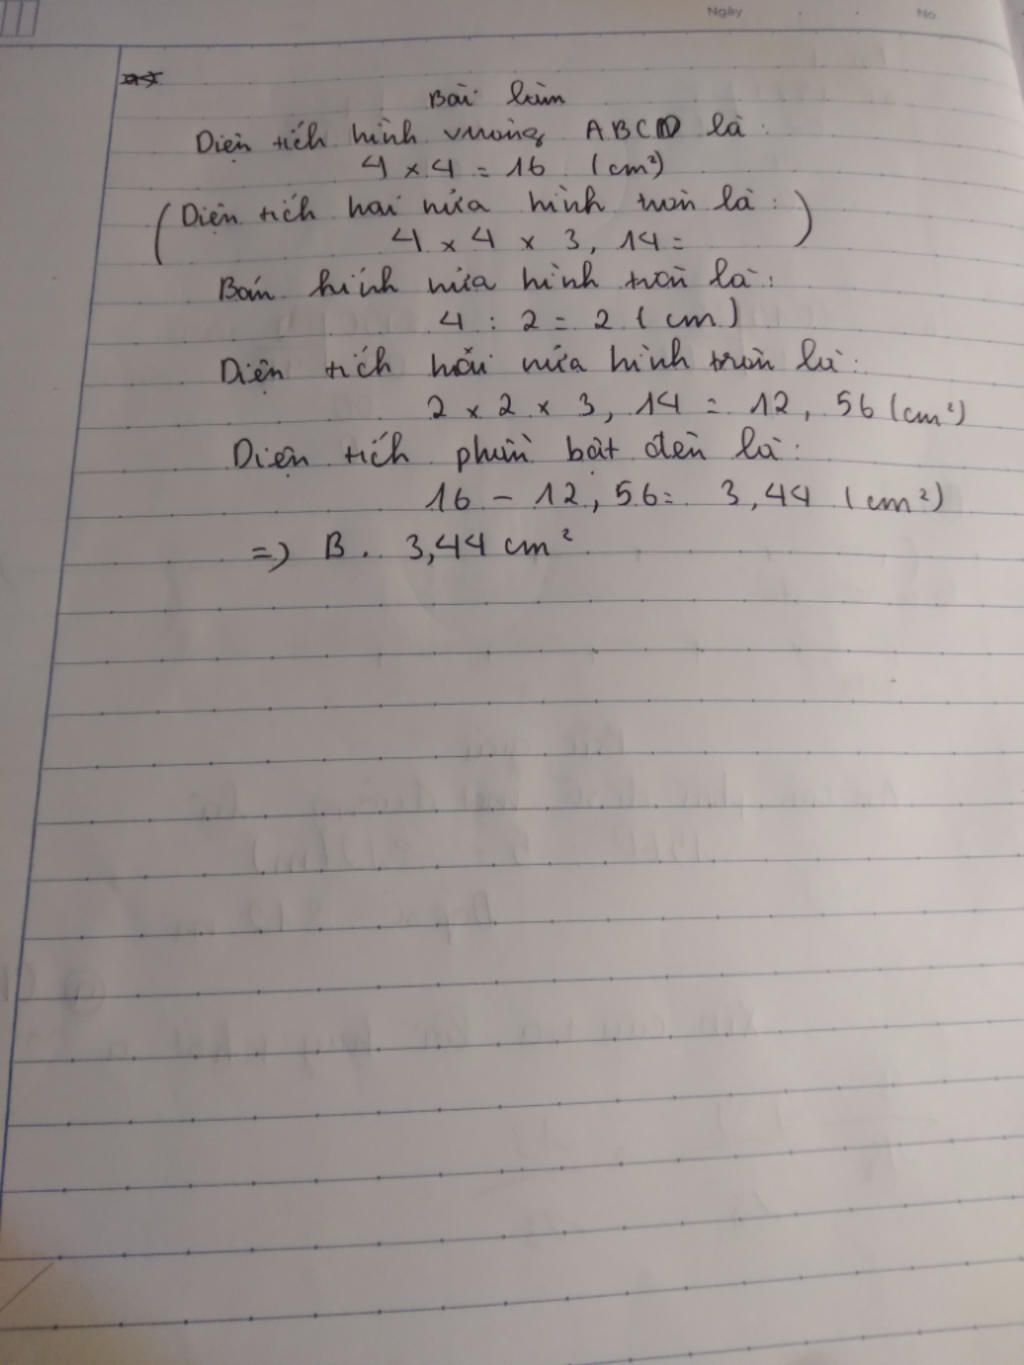 Ngày
No.
Bài làm
Diện tích hình vuông ABCD là:
4 × 4 = 16 (cm²)
(Diện tích hai nửa hình tròn là:)
4 × 4 × 3,14 =
Bán kính nửa hình tròn là:
4 : 2 = 2 (cm)
Diện tích hai nửa hình tròn là:
2 × 2 × 3,14 = 12,56 (cm²)
Diện tích phần bật đèn là:
16 - 12,56 = 3,44 (cm²)
=) B. 3,44 cm²